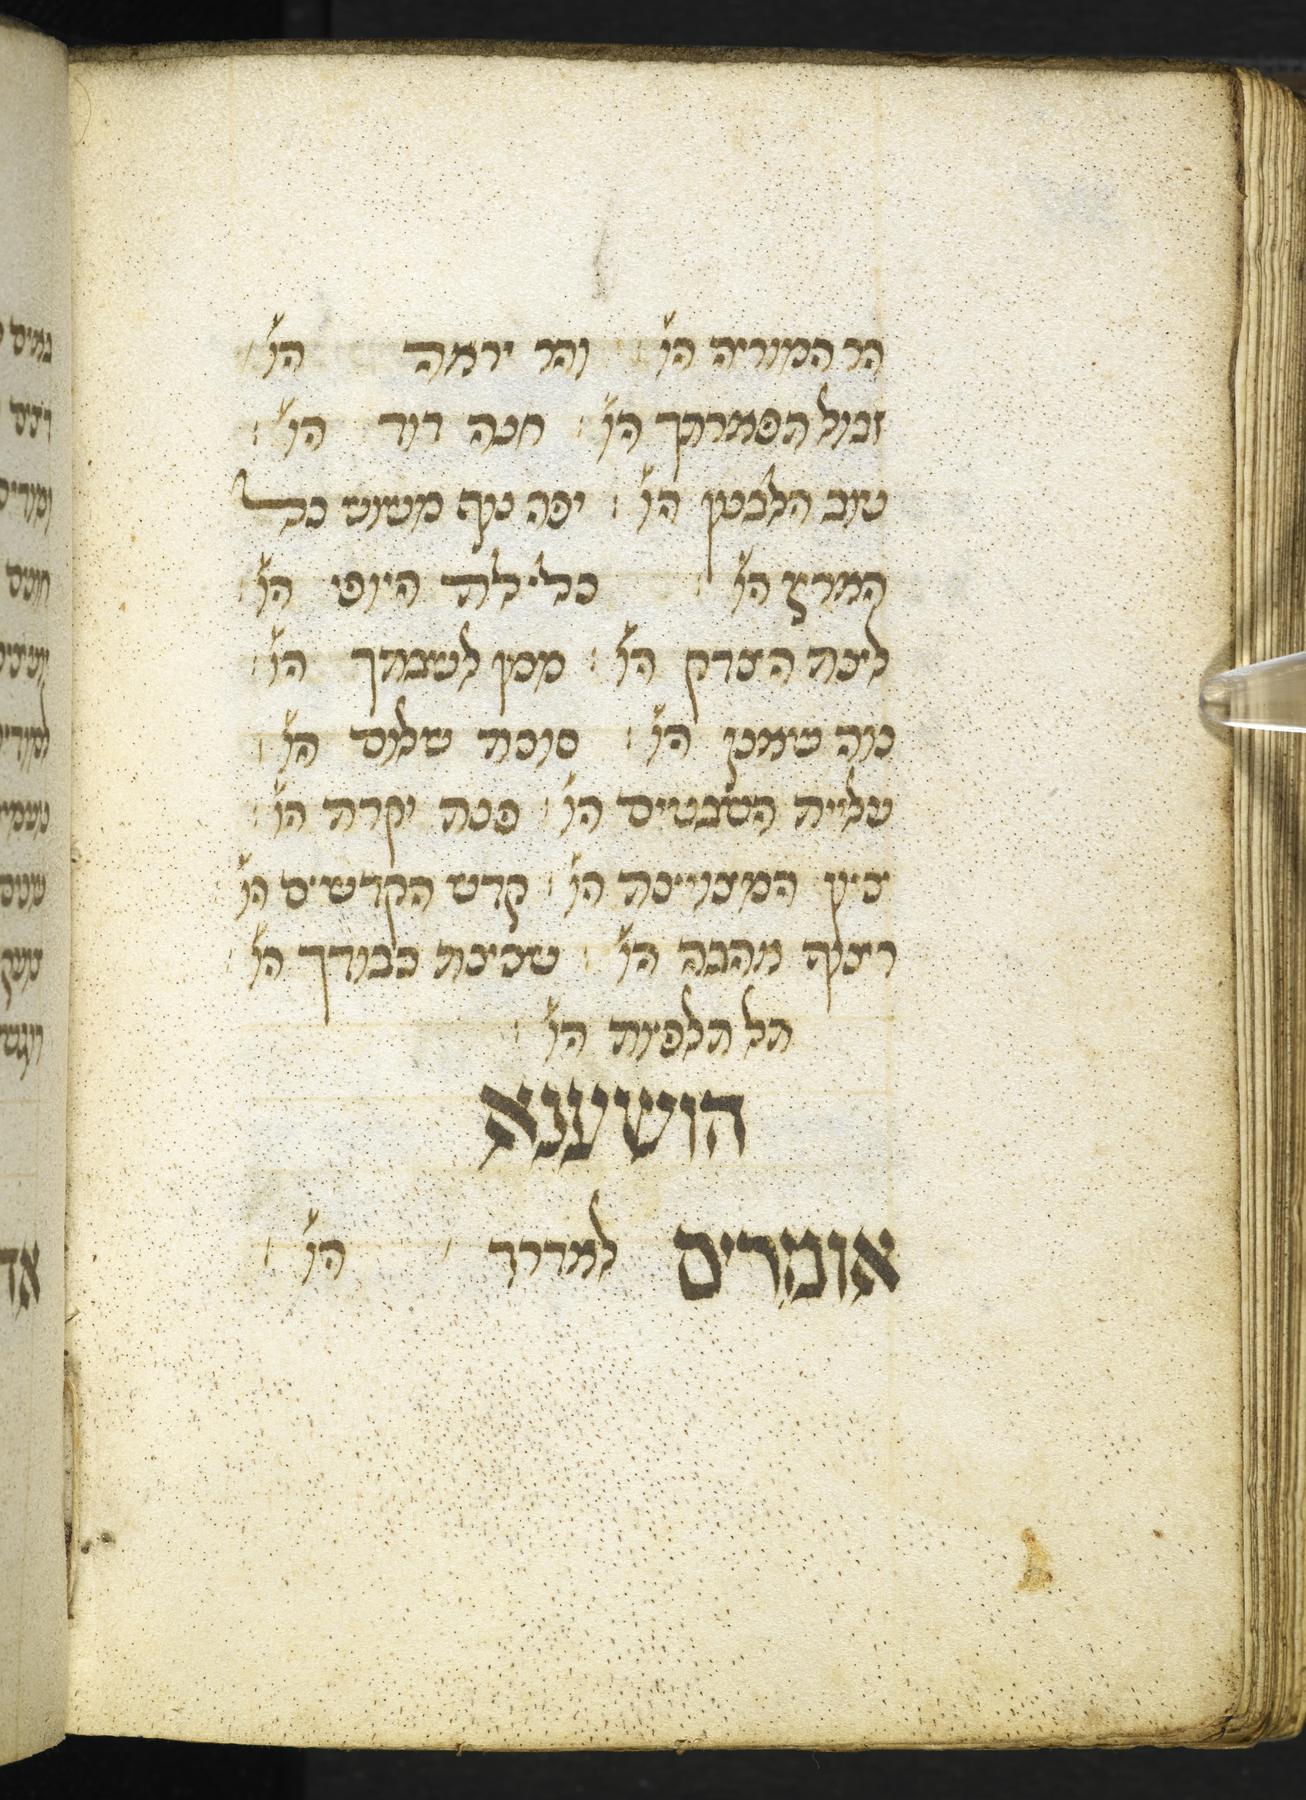 הר המוריה הו' והר יראה הו'
זבול תפארתך הו' חנה דוד הו'
טוב הלבנון הו' יפה נוף משוש כל
הארץ הו' כלילת היופי הו'
לינת הצדק הו' מכון לשבתך הו'
נוה שאנן הו' סוכת שלום הו'
עליית השבטים הו' פנת יקרת הו'
ציון המצויינת הו' קדש הקדשים הו'
רצוף אהבה הו' שכינת כבודך הו'
תל תלפיות הו'
הושענא
אומרים לאדרך הו'